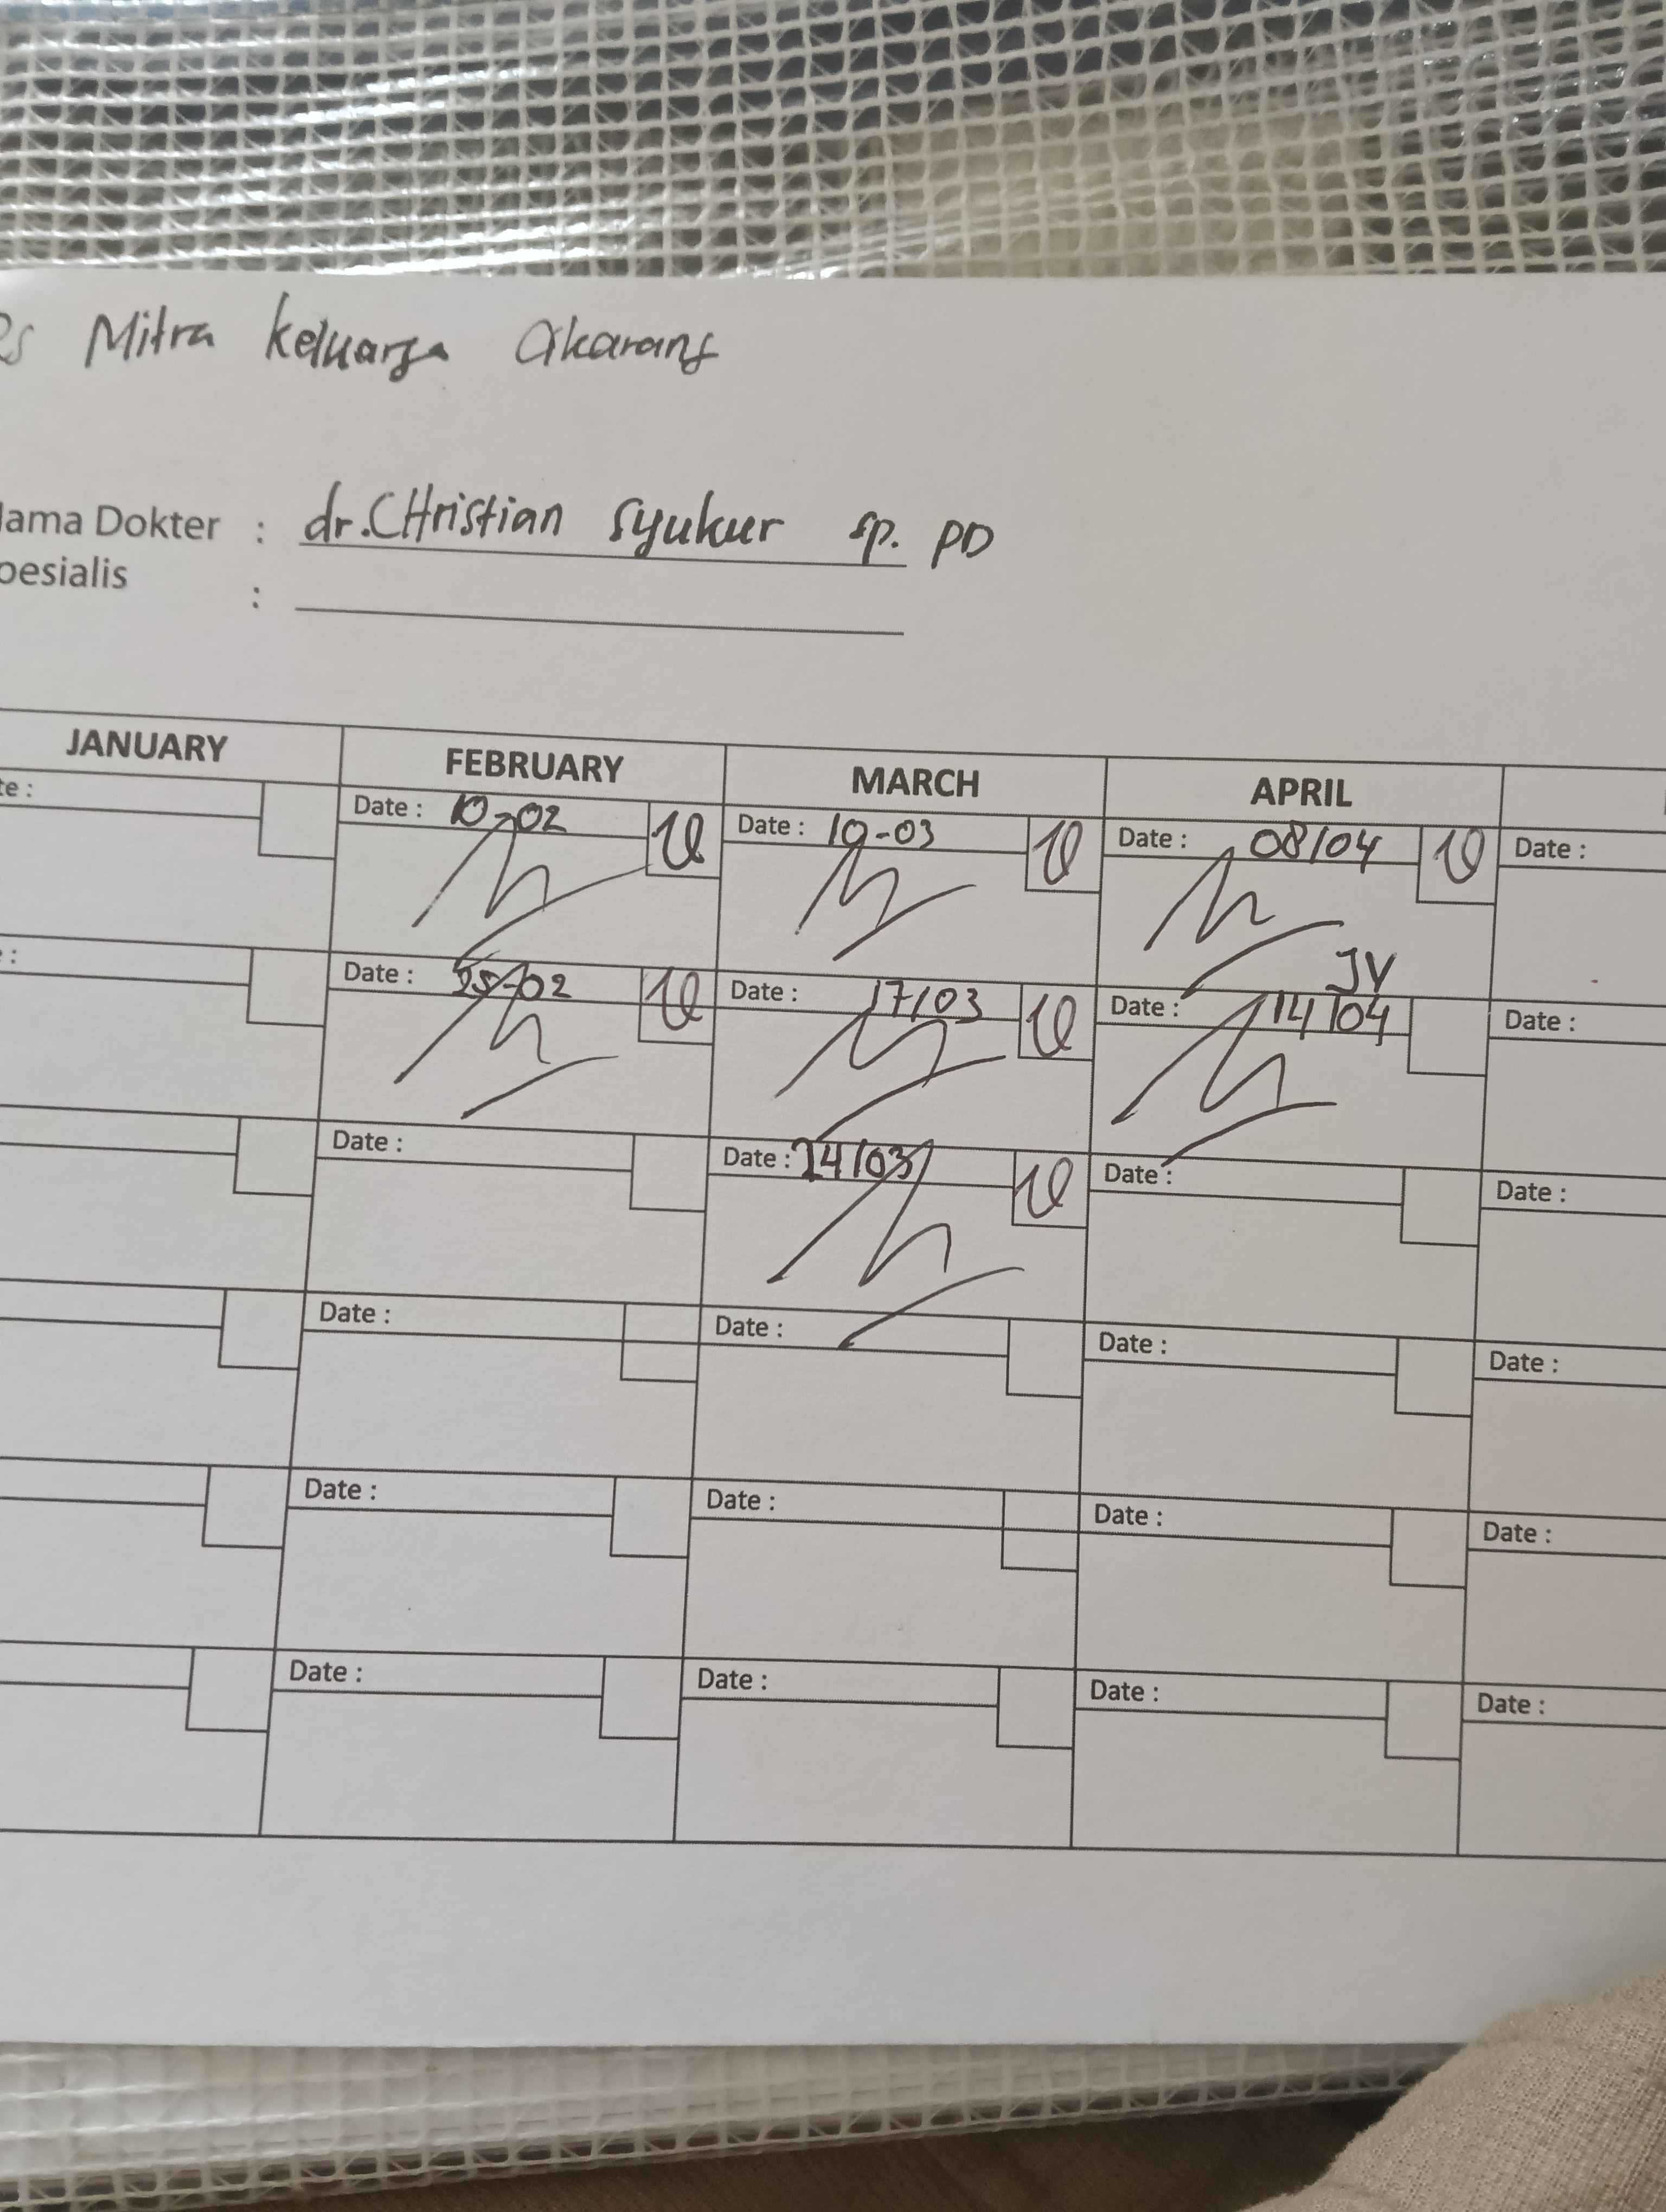 Rs Mitra keluarga Cikarang
Nama Dokter : dr.CHristian Syukur sp. PD
pesialis :
JANUARY FEBRUARY MARCH APRIL
te : Date : 10-02 Date : 10-03 Date : 08/04 Date :
JV
: Date : 25-02 Date : 17/03 Date : 14/04 Date :
Date : Date : 24/03 Date : Date :
Date : Date : Date : Date :
Date : Date : Date : Date :
Date : Date : Date : Date :